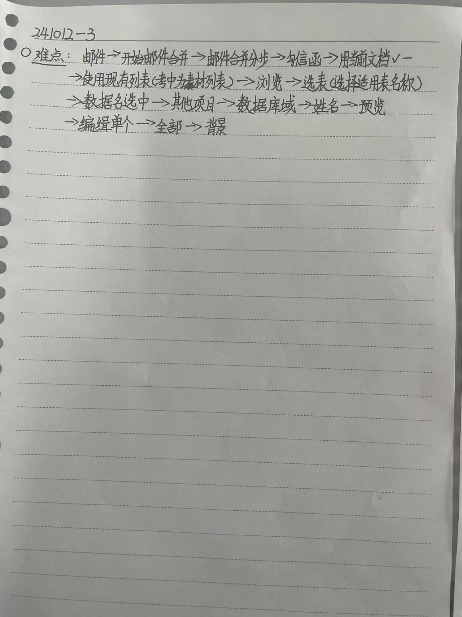 241012-3
○难点：邮件→开始邮件合并→邮件合并分步→勾信函→用当前文档✓一
→使用现有列表(考中为素材列表)→浏览→选表(选择适用表名称)
→数据名选中→其他项目→数据库域→姓名→预览
→编缉单个→全部→背景